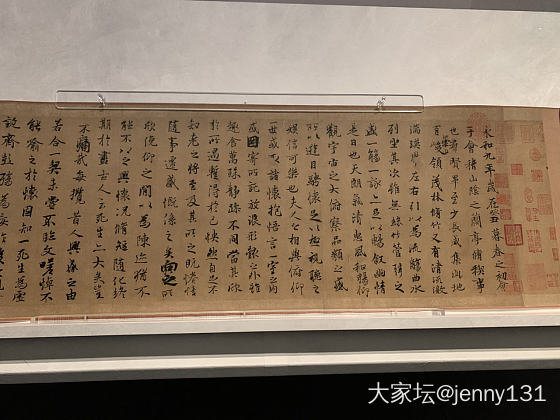 永和九年歲在癸丑暮春之初會
于會稽山陰之蘭亭脩稧事
也羣賢畢至少長咸集此地
有崇山峻領茂林脩竹又有清流激
湍暎帶左右引以為流觴曲水
列坐其次雖無絲竹管弦之
盛一觴一詠亦足以暢敘幽情
是日也天朗氣清惠風和暢仰
觀宇宙之大俯察品類之盛
所以遊目騁懷足以極視聽之
娛信可樂也夫人之相與俯仰
一世或取諸懷抱悟言一室之內
或因寄所託放浪形骸之外雖
趣舍萬殊靜躁不同當其欣
於所遇蹔得於己怏然自足不
知老之將至及其所之既惓情
隨事遷感慨係之矣向之所
欣俛仰之閒以為陳迹猶不
能不以之興懷況脩短隨化終
期於盡古人云死生亦大矣豈
不痛哉每攬昔人興感之由
若合一契未嘗不臨文嗟悼不
能喻之於懷固知一死生為虛
誕齊彭殤為妄作後
大家坛@jenny131